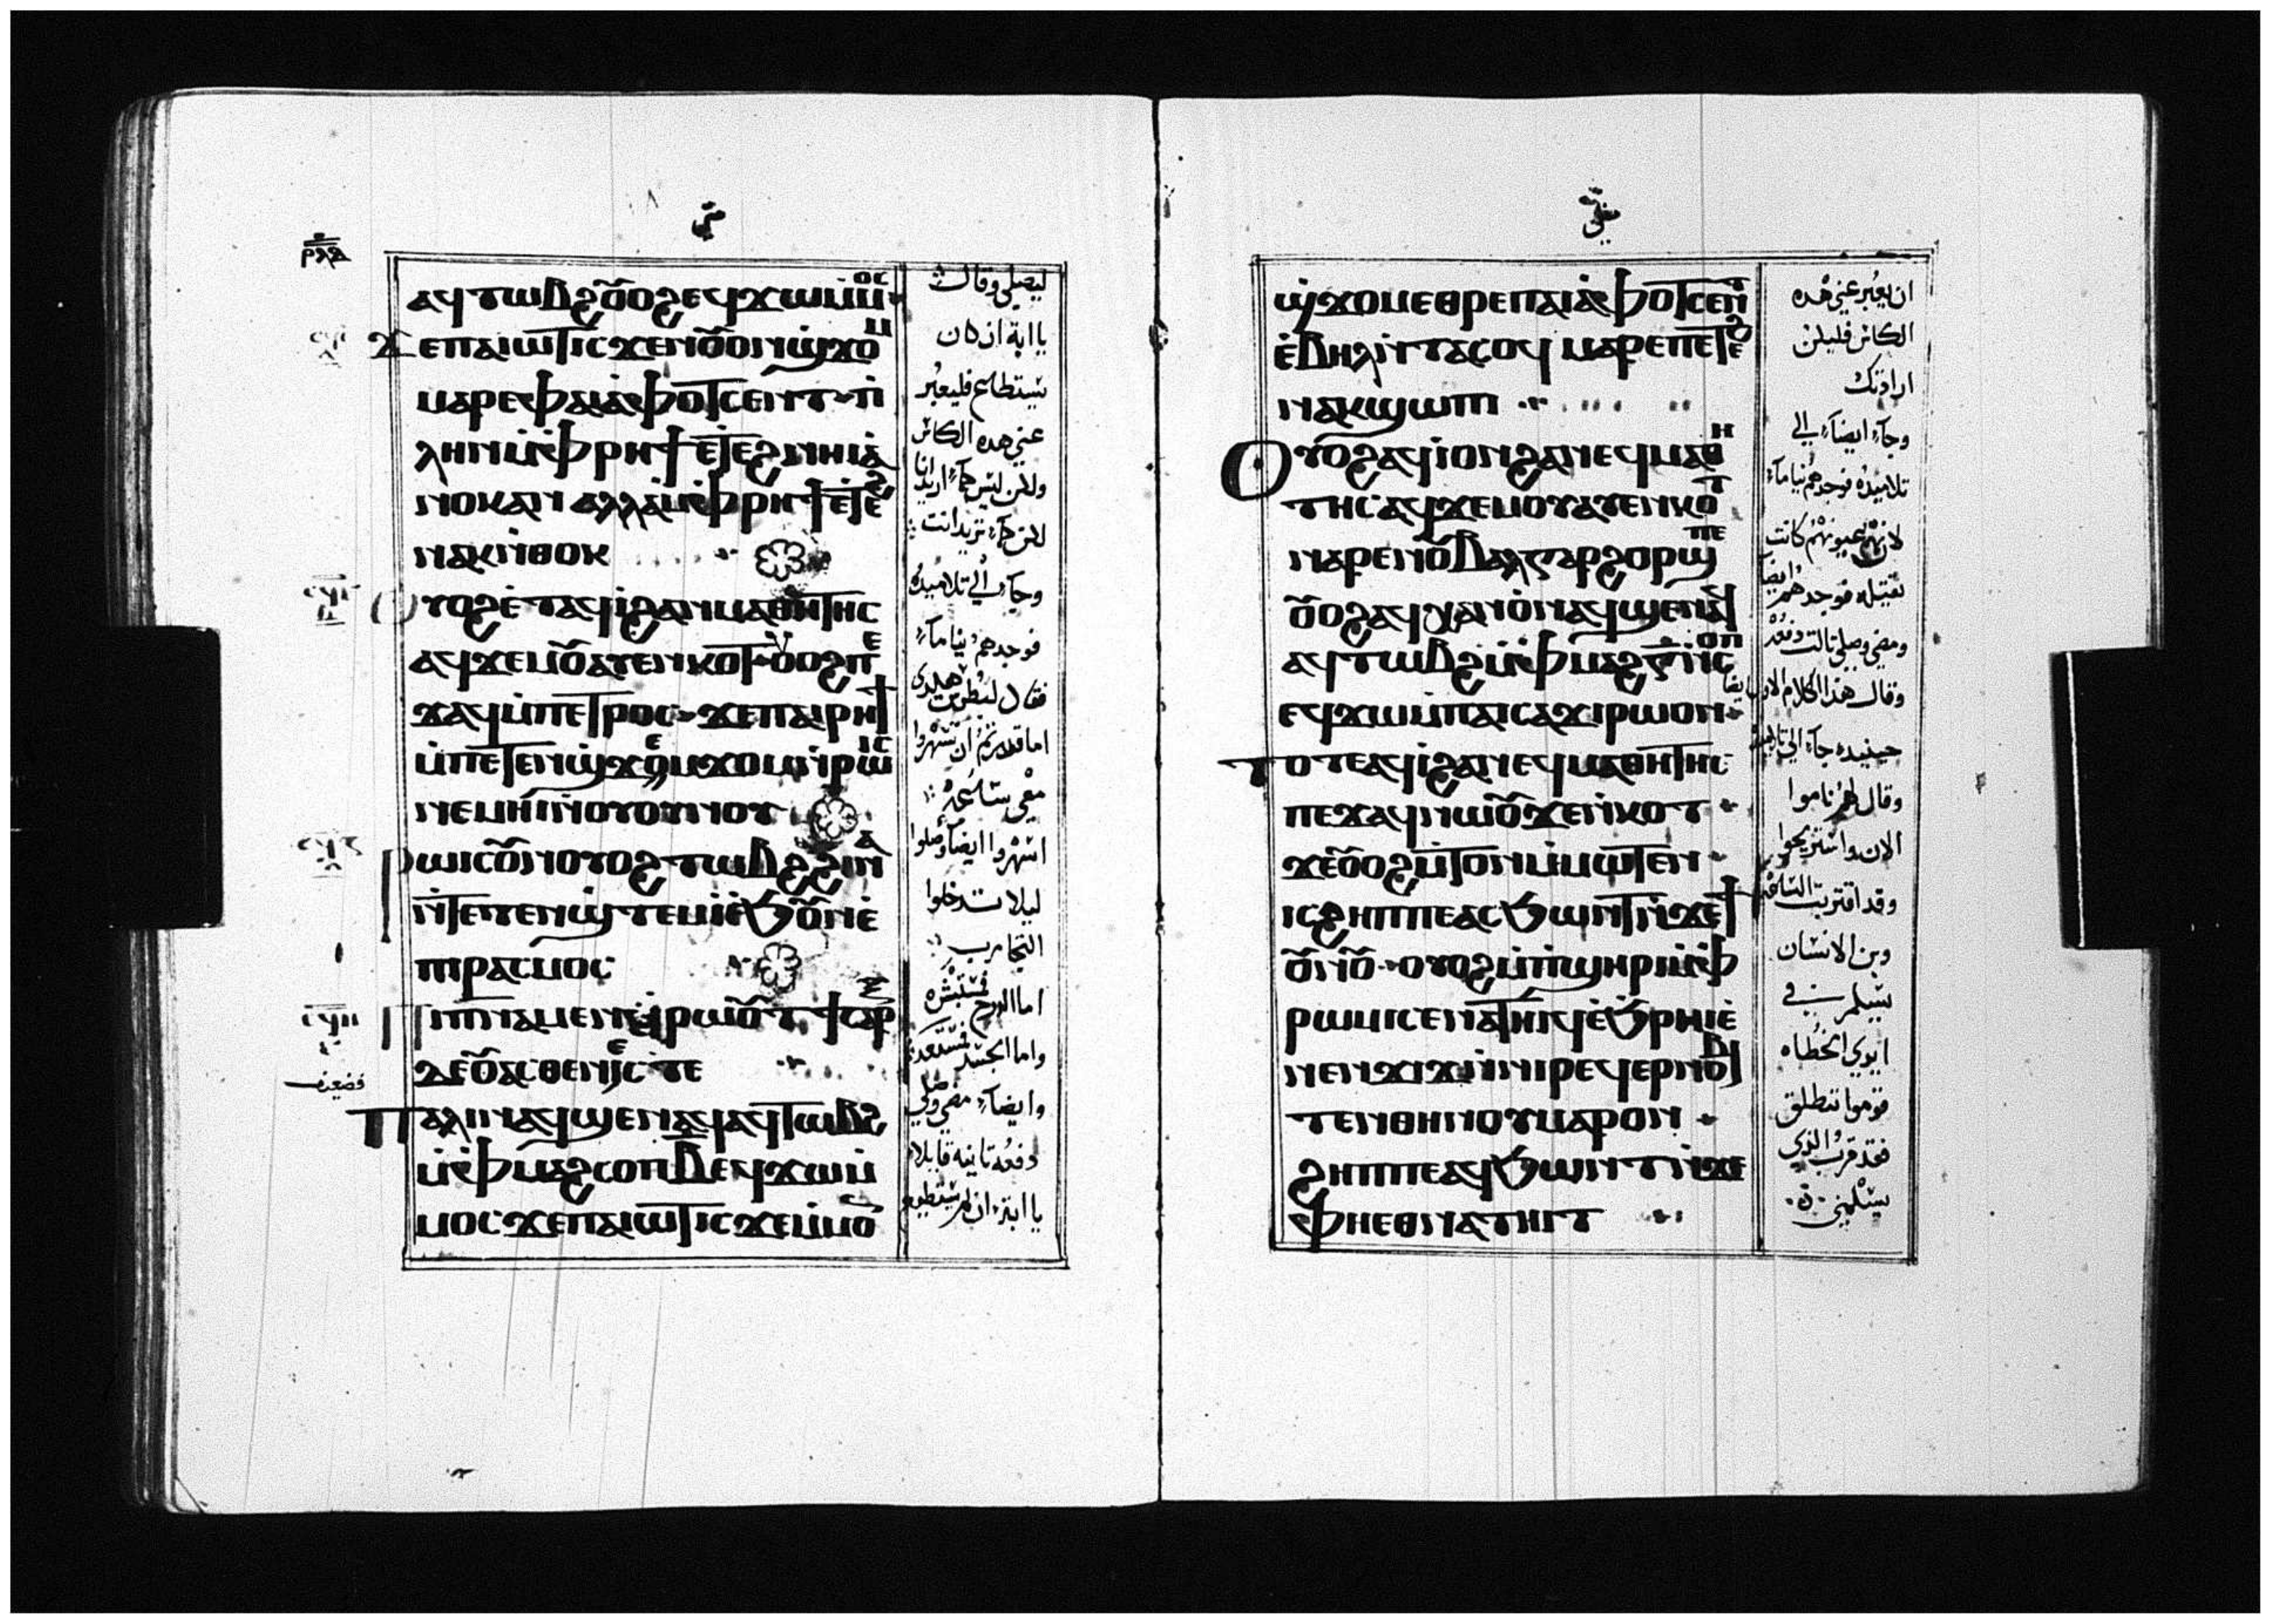 متى
ⲁϥⲧⲱⲃϩ ⲟⲩⲟϩ ⲉϥϫⲱ ⲙ̇ⲙⲟⲥ
ϫⲉ ⲡⲁⲓⲱⲧ ⲓⲥϫⲉ ⲟⲩⲟⲛ ϣϫⲟⲙ
ⲙⲁⲣⲉ ⲡⲁⲓⲁⲫⲟⲧ ⲥⲉⲛⲧ ⲡ̇
ⲗⲏⲛ ⲙ̇ⲫⲣⲏϯ ⲉⲧⲉϩⲛⲏⲓ ⲁ̇
ⲛⲟⲕ ⲁⲛ ⲁⲗⲗⲁ ⲙ̇ⲫⲣⲏϯ ⲉ̇ⲧⲉϩ
ⲛⲁⲕ ⲛ̇ⲑⲟⲕ
ⲟⲩⲟϩ ⲉ̇ⲧⲁϥⲓ̇ ϩⲁ ⲛⲓⲙⲁⲑⲏⲧⲏⲥ
ⲁϥϫⲉⲙⲟ̅ⲩ̅ ⲁⲩⲉⲛⲕⲟⲧ ⲟⲩⲟϩ ⲡⲉ
ϫⲁϥ ⲙ̇ⲡⲉⲧⲣⲟⲥ ϫⲉ ⲡⲁⲓⲣⲏϯ
ⲙ̇ⲡⲉⲧⲉⲛϣϫⲉⲙϫⲟⲙ ⲛ̇ⲣⲱⲓⲥ
ⲛⲉⲙⲏⲓ ⲛ̇ⲟⲩⲟⲩⲛⲟⲩ
ⲣⲱⲓⲥ ⲟⲩⲛ ⲟⲩⲟϩ ⲧⲱⲃϩ ϩⲓⲛⲁ
ⲛ̇ⲧⲉⲧⲉⲛϣⲧⲉⲙⲓ̇ ⲉ̇ϧⲟⲩⲛ ⲉ̇
ⲡⲓⲣⲁⲥⲙⲟⲥ
ⲡⲓⲡⲛⲁ ⲙⲉⲛ ϥⲣⲱⲟⲩⲧ ϯⲥⲁⲣⲝ
ⲇⲉ ⲟⲩⲁⲥⲑⲉⲛⲏⲥ ⲧⲉ
ⲡⲁⲗⲓⲛ ⲁϥϣⲉⲛⲁϥ ⲁϥⲧⲱⲃϩ
ⲙ̇ⲫⲙⲁϩ ⲥⲟⲡ ⲃ̅ ⲉϥϫⲱ ⲙ̇
ⲙⲟⲥ ϫⲉ ⲡⲁⲓⲱⲧ ⲓⲥϫⲉ ⲙ̇ⲙⲟⲛ
ليصلي وقال
يا ابة ان كان
يستطاع فليعبر
عني هده الكاس
ولكن ليس كما اريد انا
لكن كما تريد انت
وجا الي تلاميده
فوجدهم نياما
فقال لبطرس هكدي
اما قدرتم ان تسهروا
معي ساعة
اسهروا ايضا وصلوا
ليلا تدخلوا
التجارب
اما الروح فمستبشره
واما الجسد
وايضا مضي وصلي
دفعه تانيه قايلا
يا ابتى ان لم يستطيع
ϣϫⲟⲙ ⲉⲑⲣⲉ ⲡⲁⲓⲁⲫⲟⲧ ⲥⲉⲛⲧ
ⲉ̇ⲃⲏⲗ ⲛ̇ⲧⲁⲥⲟϥ ⲙⲁⲣⲉ ⲡⲉⲧⲉϩ
ⲛⲁⲕ ϣⲱⲡⲓ
ⲟⲩⲟϩ ⲁϥⲓ̇ ⲟⲛ ϩⲁ ⲛⲉϥⲙⲁⲑⲏ
ⲧⲏⲥ ⲁϥϫⲉⲙⲟⲩ ⲁⲩⲉⲛⲕⲟⲧ
ⲛⲁⲣⲉ ⲛⲟⲩⲃⲁⲗ ⲅⲁⲣ ϩⲟⲣϣ ⲡⲉ
ⲟⲩⲟϩ ⲁϥⲭⲁⲩ ⲟⲛ ⲁϥϣⲉⲛⲁϥ
ⲁϥⲧⲱⲃϩ ⲙ̇ⲫⲙⲁϩ ⲅ̅ ⲛ̇ⲥⲟⲡ
ⲉϥϫⲱ ⲙ̇ⲡⲁⲓⲥⲁϫⲓ ⲣⲱ ⲟⲛ
ⲧⲟⲧⲉ ⲁϥⲓ̇ ϩⲁ ⲛⲉϥⲙⲁⲑⲏⲧⲏⲥ
ⲡⲉϫⲁϥ ⲛⲱⲟⲩ ϫⲉ ⲛ̇ⲕⲟⲧ
ϫⲉ ⲟⲩⲟϩ ⲙ̇ⲧⲟⲛ ⲙ̇ⲙⲱⲧⲉⲛ
ⲓⲥ ϩⲏⲡⲡⲉ ⲁⲥϧⲱⲛⲧ ⲛ̇ϫⲉ ϯ
ⲟⲩⲛⲟⲩ ⲟⲩⲟϩ ⲙ̇ⲡ̇ϣⲏⲣⲓ ⲙ̇ⲫ
ⲣⲱⲙⲓ ⲥⲉⲛⲁⲧⲏⲓϥ ⲉ̇ϧⲣⲏⲓ ⲉ̇
ⲛⲉⲛϫⲓϫ ⲛ̇ⲛⲓⲣⲉϥⲉⲣⲛⲟⲃⲓ
ⲧⲉⲛ ⲑⲏⲛⲟⲩ ⲙⲁⲣⲟⲛ
ϩⲏⲡⲡⲉ ⲁϥϧⲱⲛⲧ ⲛ̇ϫⲉ
ⲫⲏⲉⲑⲛⲁⲧⲏⲓⲧ
ان يعبر عني هده
الكاس فليكن
ارادتك
وجا ايضا الي
تلاميده فوجدهم نياما
لان عيونهم كانت
تقيله فوجدهم ايضا
ومضي وصلي تالت دفعه
وقال هدا الكلام الاول ايضا
حينيده جا الي تلاميده
وقال لهم ناموا
الان واستريحوا
وقد اقتربت الساعة
وبن الانسان
يسلم في
ايدي الخطاه
قوموا ننطلق
فقد قرب الذي
يسلمني